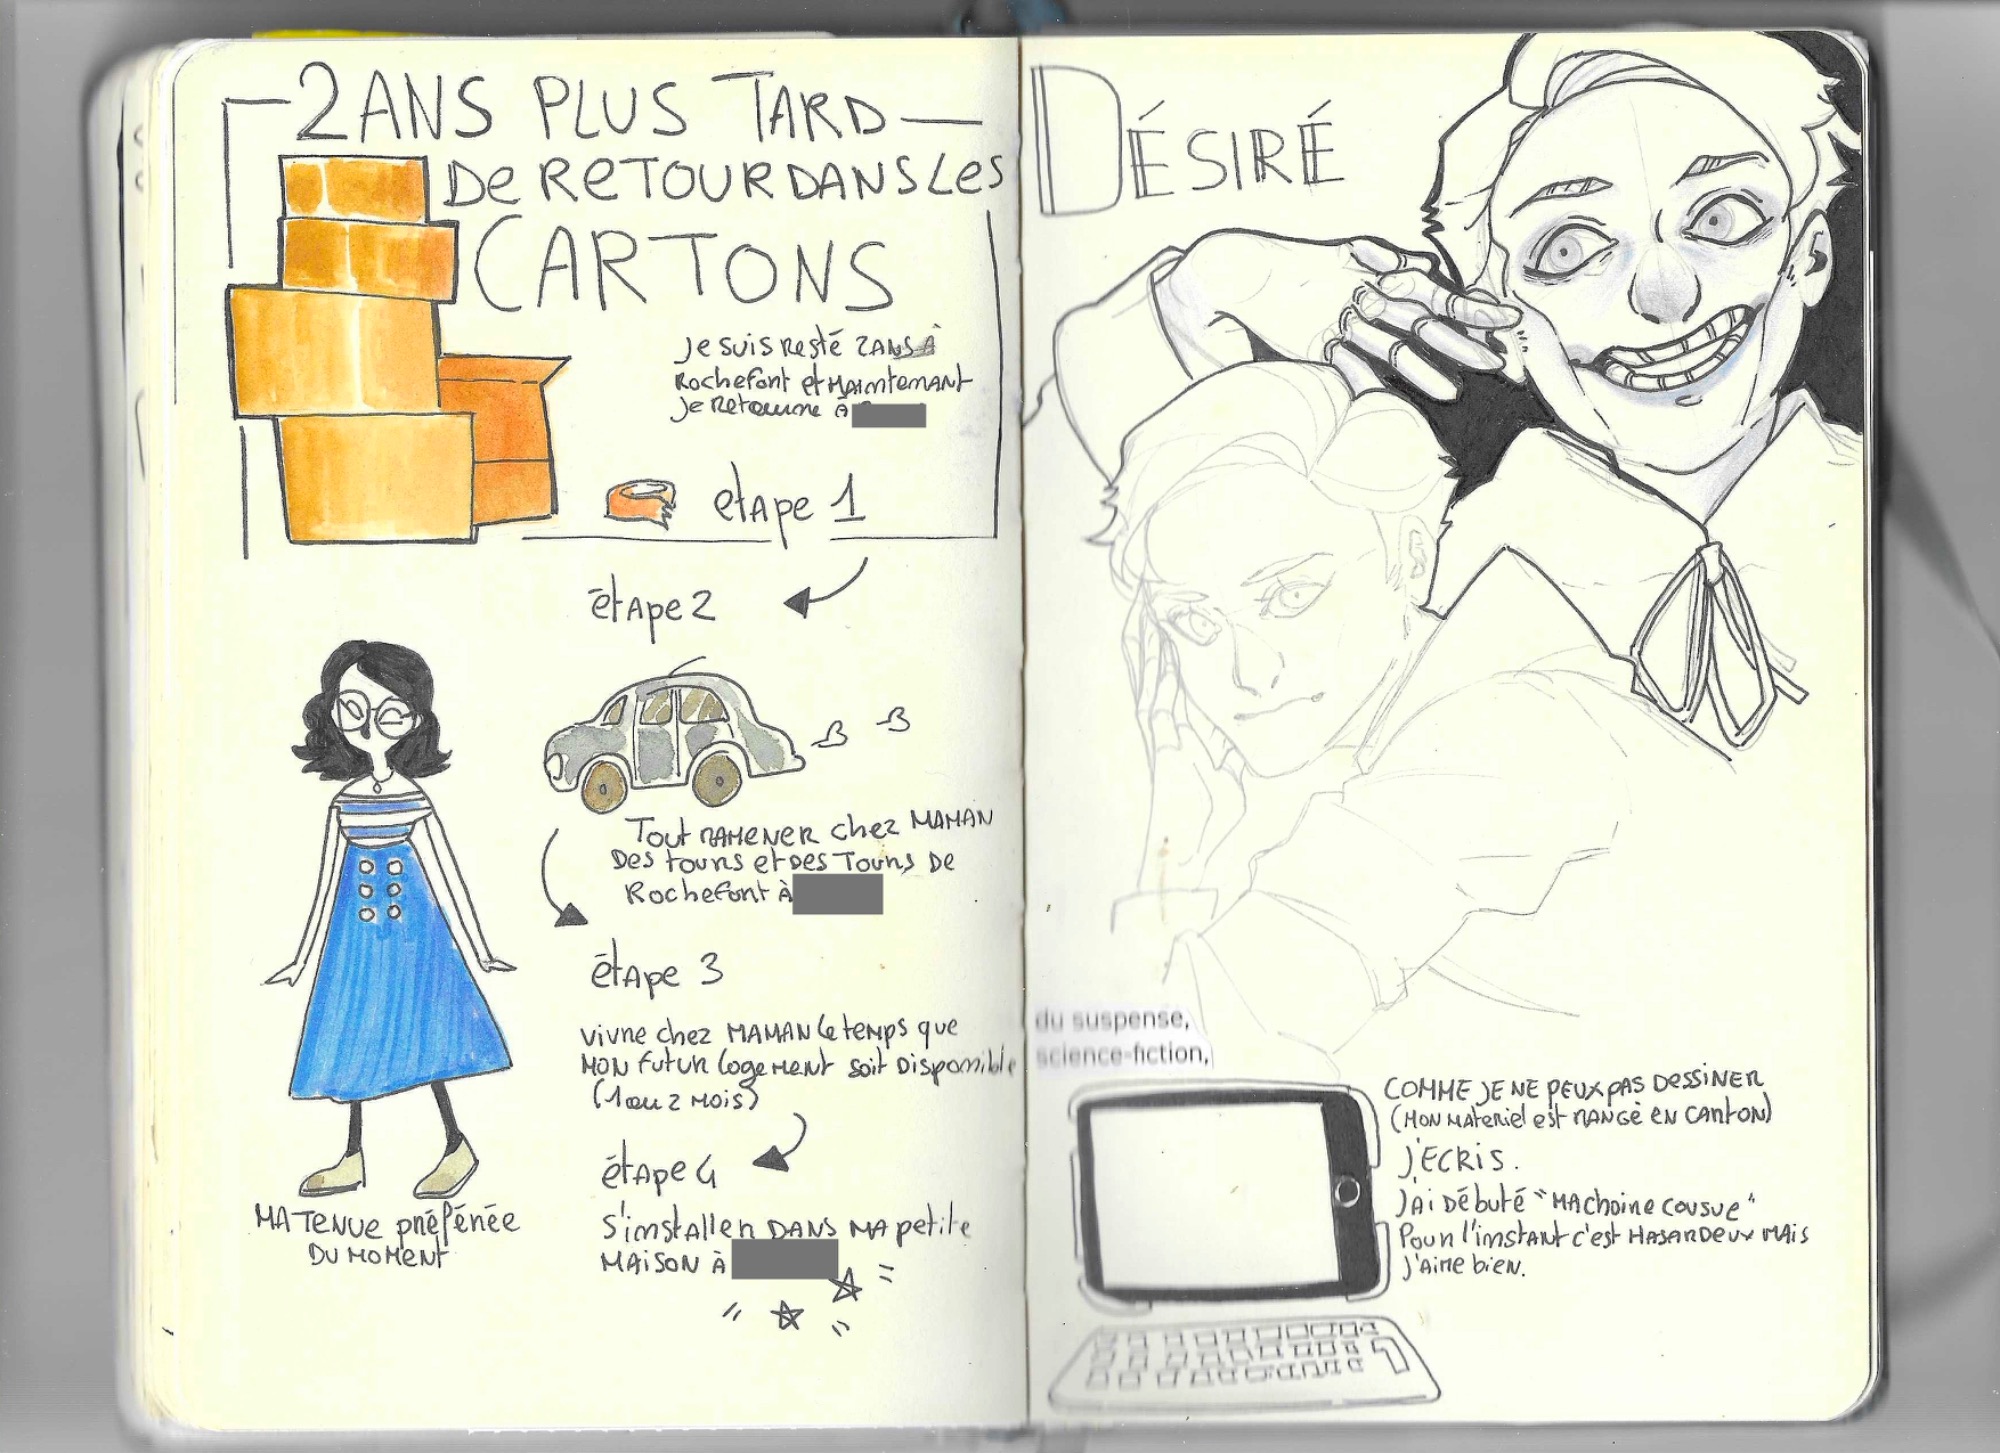 2 ANS PLUS TARD
De ReTOUR DANS Les
CARTONS
Je suis Resté 2ANS À
Rochefort et MAintenANT
Je Retourne À
etApe 1
étApe 2
Tout RAMENER chez MAMAN
Des tours et Des Tours De
Rochefort À
étApe 3
vivre chez MAMAN le teMps que
MON futur logeMENT soit Disponible
(1 ou 2 MOIS)
étApe 4
S'installer DANS MA petite
MAISON À
MA TENUE pRéféRée
DU MOMENT
DÉSIRÉ
du suspense,
science-fiction,
COMME JE NE PEUX pAS DessiNER
(MON MATeRiel est RANGé EN CARTON)
J'ECRIS.
J'Ai Débuté "MAchoiRe COUSUE"
Pour l'instant c'est HASARDeux MAis
J'AiMe bien.